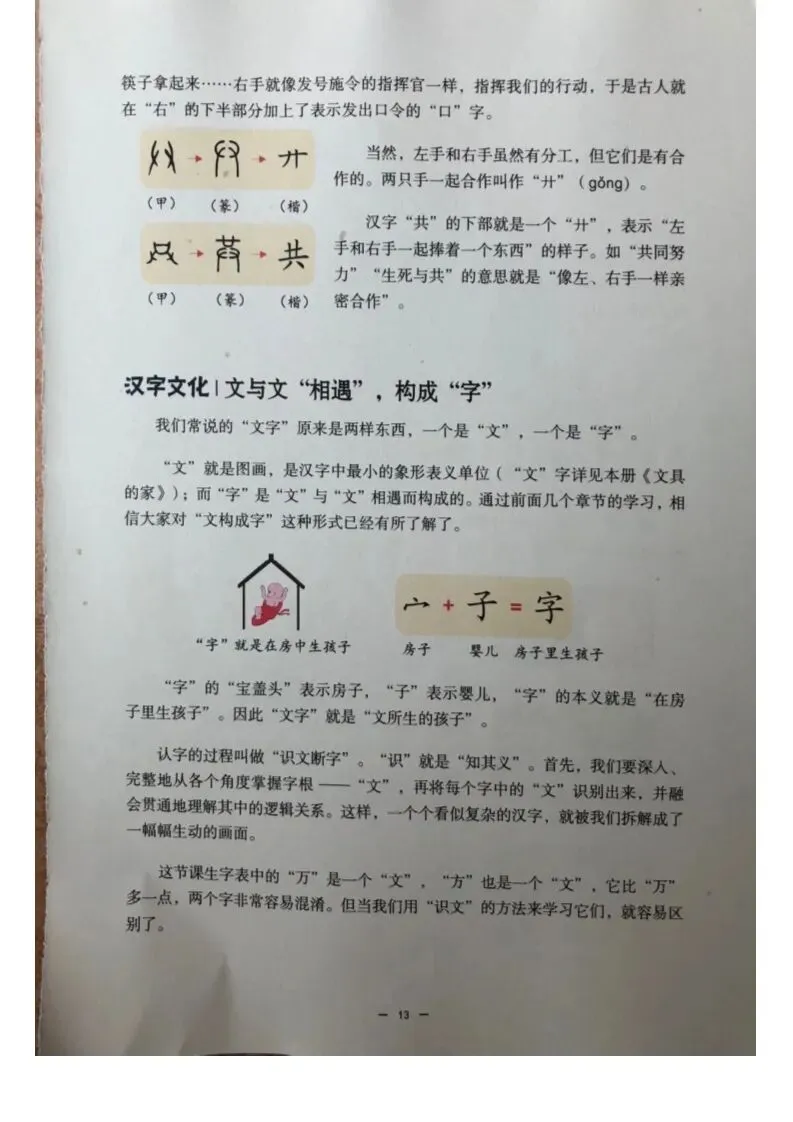 筷子拿起来……右手就像发号施令的指挥官一样，指挥我们的行动，于是古人就
在“右”的下半部分加上了表示发出口令的“口”字。
当然，左手和右手虽然有分工，但它们是有合
作的。两只手一起合作叫作“廾”（gǒng）。
廾
（甲） （篆） （楷）
汉字“共”的下部就是一个“廾”，表示“左
手和右手一起捧着一个东西”的样子。如“共同努
力”“生死与共”的意思就是“像左、右手一样亲
密合作”。
共
（甲） （篆） （楷）
汉字文化|文与文“相遇”，构成“字”
我们常说的“文字”原来是两样东西，一个是“文”，一个是“字”。
“文”就是图画，是汉字中最小的象形表义单位（“文”字详见本册《文具
的家》）；而“字”是“文”与“文”相遇而构成的。通过前面几个章节的学习，相
信大家对“文构成字”这种形式已经有所了解了。
“字”就是在房中生孩子
宀 + 子 = 字
房子 婴儿 房子里生孩子
“字”的“宝盖头”表示房子，“子”表示婴儿，“字”的本义就是“在房
子里生孩子”。因此“文字”就是“文所生的孩子”。
认字的过程叫做“识文断字”。“识”就是“知其义”。首先，我们要深人、
完整地从各个角度掌握字根——“文”，再将每个字中的“文”识别出来，并融
会贯通地理解其中的逻辑关系。这样，一个个看似复杂的汉字，就被我们拆解成了
一幅幅生动的画面。
这节课生字表中的“万”是一个“文”，“方”也是一个“文”，它比“万”
多一点，两个字非常容易混淆。但当我们用“识文”的方法来学习它们，就容易区
别了。
— 13 —